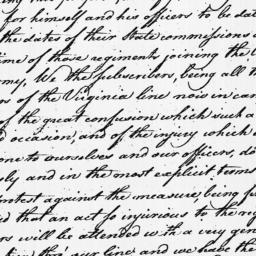 for himself and his officers to be dat
the dates of their State commissions
ime of those regiments joining the
my, We the subscribers, being all
rs of the Virginia line now in ca
of the great confusion which such a
d occasion, and of the injury which
one to ourselves and our officers, do
sly and in the most explicit terms
rotest against the measure, being
d that an act so injurious to the re
rs will be attended with a very gen
thro' our line and we have the